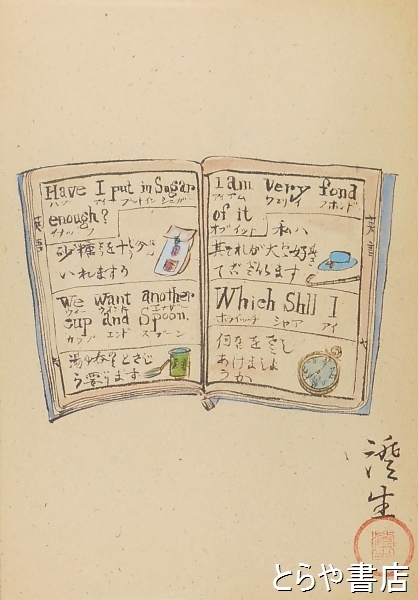 Have I put in Sugar
ハブ アイ プットイン シュガー
enough?
イナッフ
砂糖を十分
いれますう
We want another
ウィー ウイント エナザー
sup and Spoon.
カップ エンド スプーン
英語
I am very fond
アイアム ウェリイ フホンド
of it
オブイット
私ハ
其それが大好き
てござゐます
Which Shll I
ホウイッチ シヤア アイ
何をさし
あけましよ
うか
英語
澄生
とらや書店